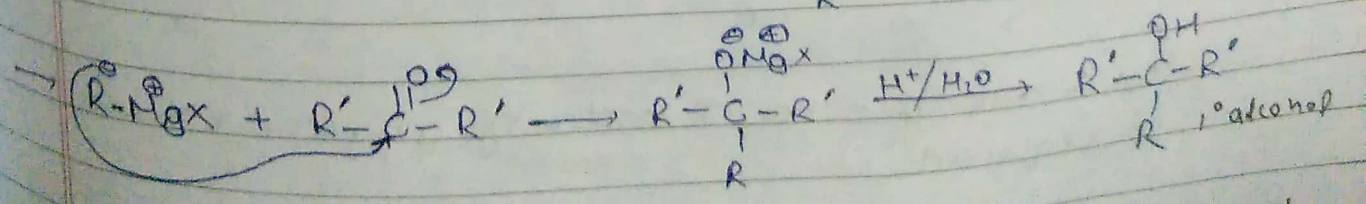 → R⊖-Mg⊕X + R'-C(=O)-R' ⟶ R'-C(O⊖Mg⊕X)(R)-R' —H⁺/H₂O→ R'-C(OH)(R)-R' 1° alcohol